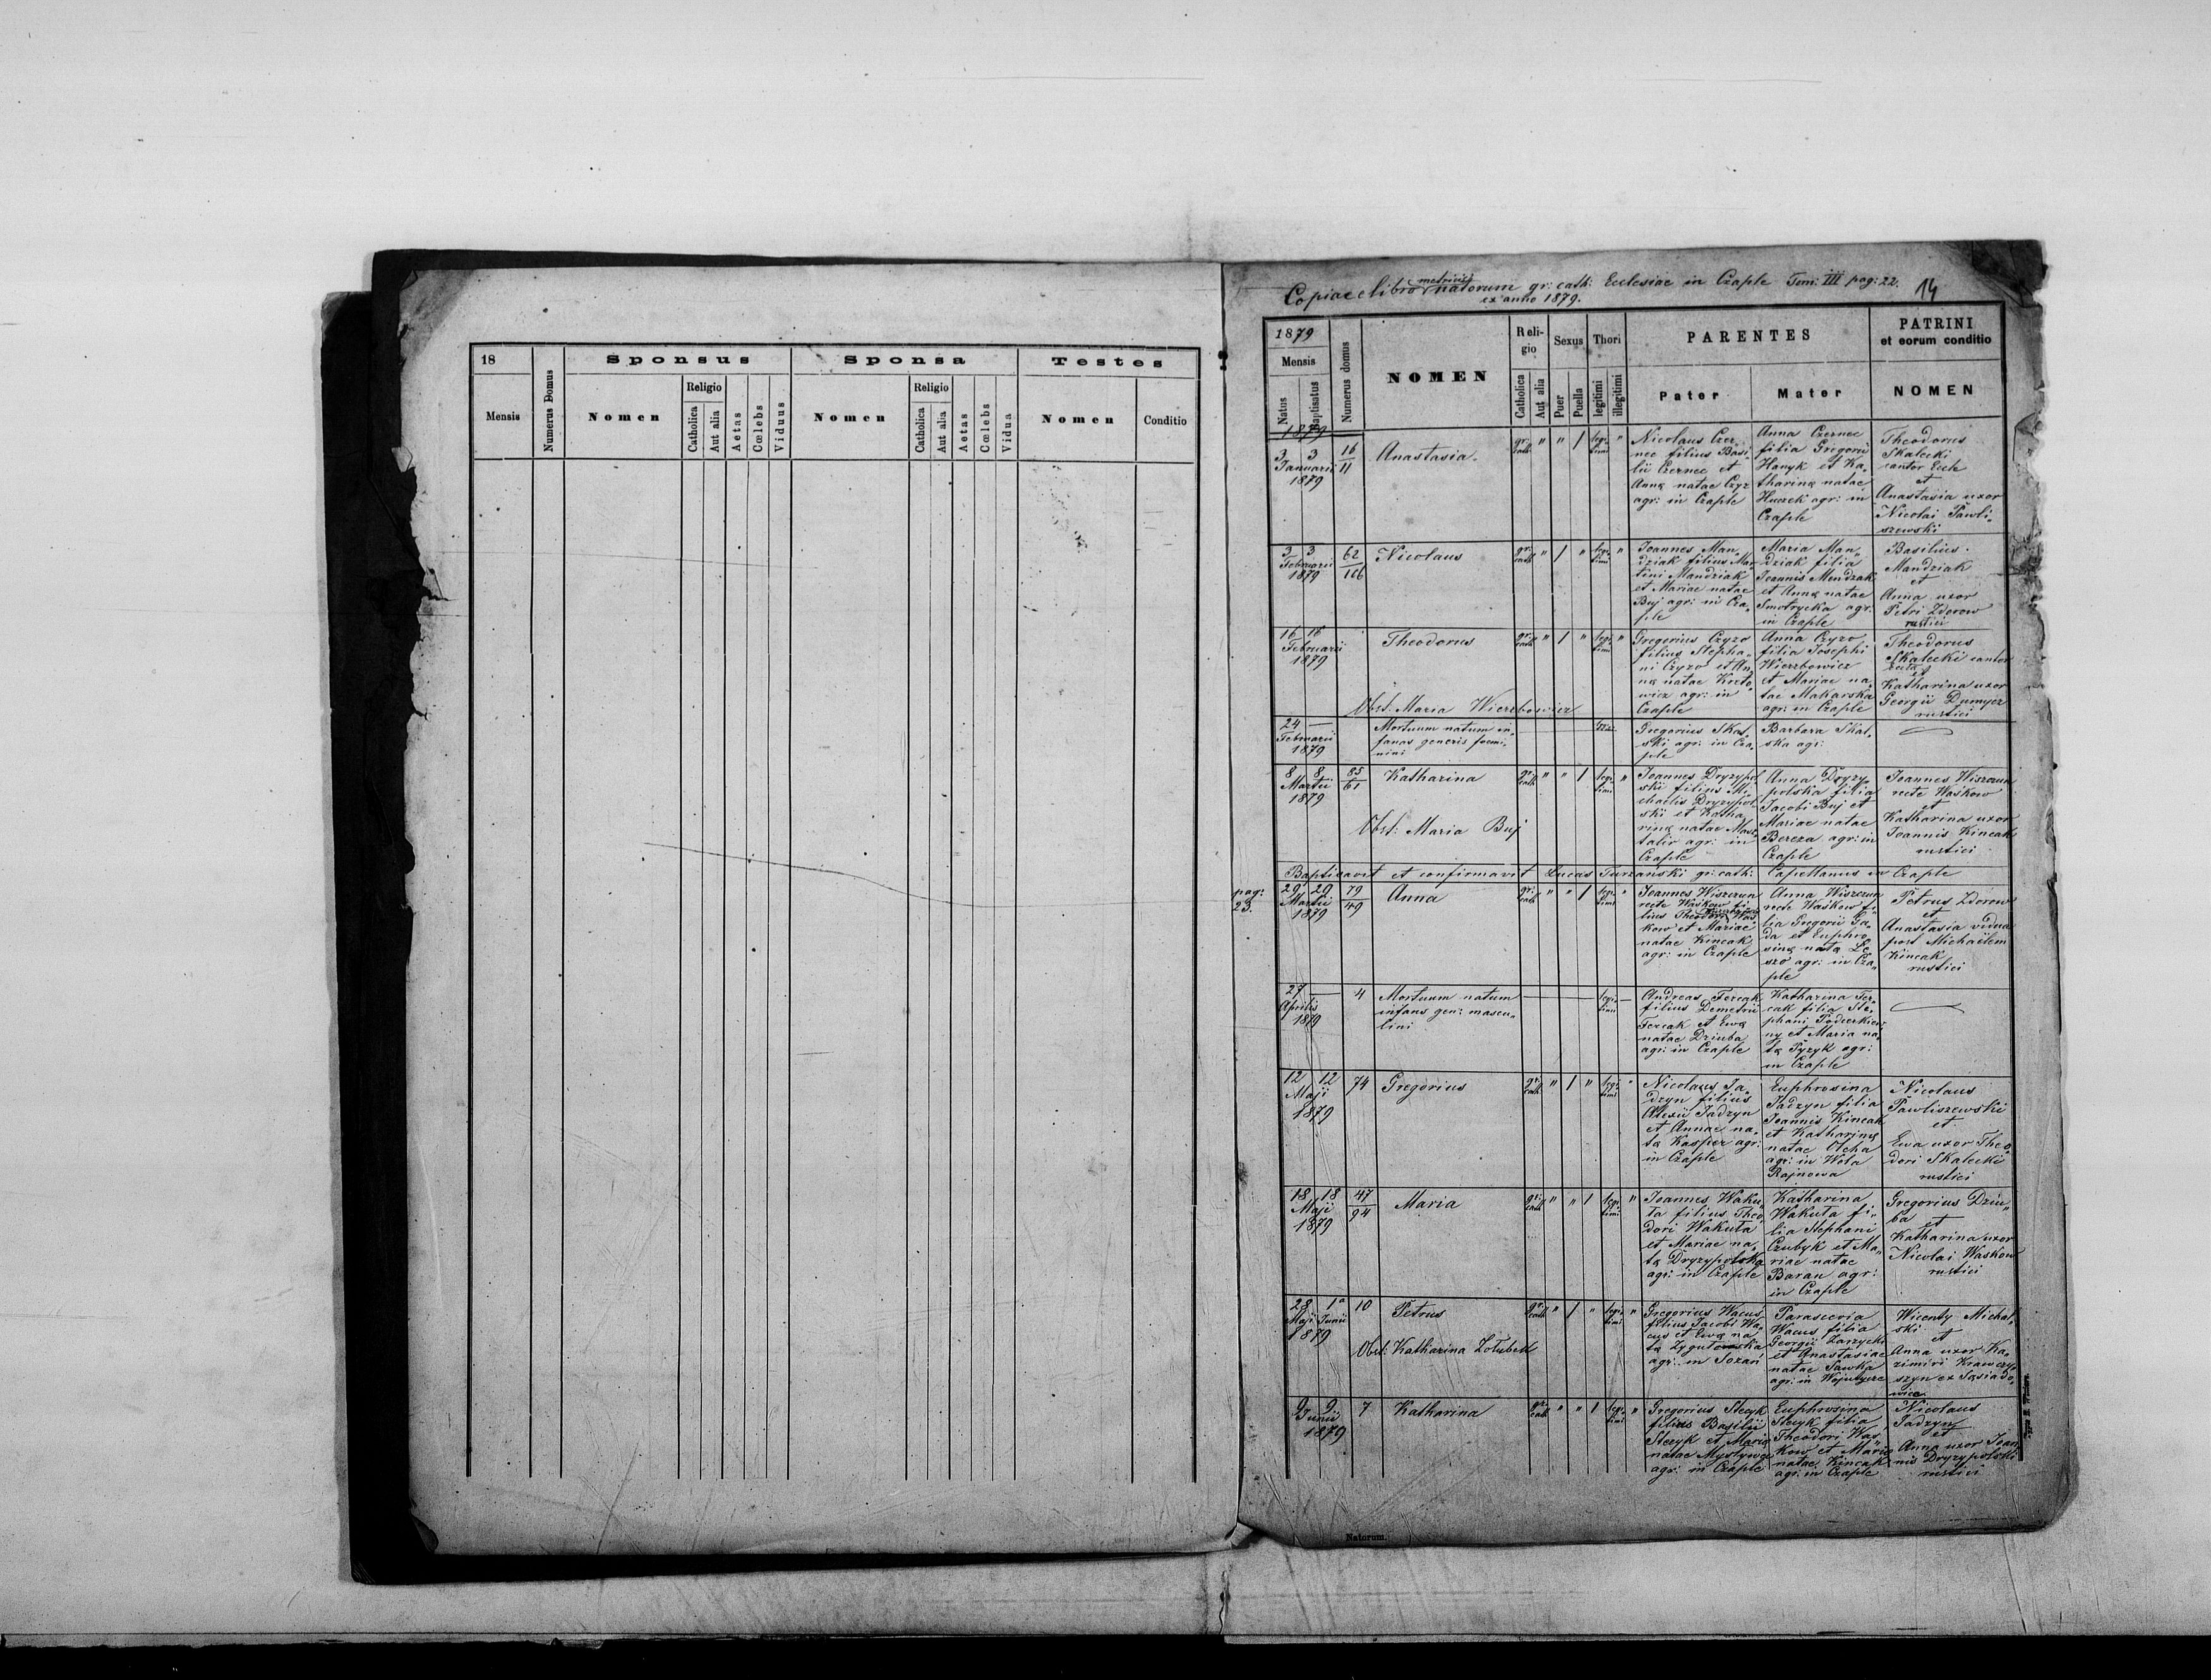 18
Mensis
Numerus Domus
Sponsus
Nomen
Religio
Catholica
Aut alia
Aetas
Cœlebs
Viduus
Sponsa
Nomen
Religio
Catholica
Aut alia
Aetas
Cœlebs
Vidua
Testes
Nomen
Conditio
Copia e libro metrices natorum gr: cath: Ecclesiae in Czaple Tom: III pag: 22.
ex anno 1879.
14
1879
Mensis
Natus
Baptisatus
Numerus domus
NOMEN
Reli-
gio
Catholica
Aut alia
Sexus
Puer
Puella
Thori
legitimi
illegitimi
PARENTES
Pater
Mater
PATRINI
et eorum conditio
NOMEN
1879
3 3
Januarii
1879
16
11
Anastasia.
gr:
cath
" " 1
legi-
timi
"
Nicolaus Czer-
nec filius Basi-
lii Czernec et
Anna natae Czyz
agr: in Czaple
Anna Czernec
filia Gregorii
Hanyk et Ka-
tharina natae
Huczek agr: in
Czaple
Theodorus
Skalecki
cantor Eccle
et
Anastasia uxor
Nicolai Pawli-
szewski
3 3
Februarii
1879
62
106
Nicolaus
gr:
cath
" 1 "
legi-
timi
"
Joannes Man-
dziak filius Mar-
tini Mandziak
et Mariae natae
Buj agr: in Cza-
ple
Maria Man-
dziak filia
Joannis Mendzak
et Anna natae
Smotrycka agr:
in Czaple
Basilius
Mandziak
et
Anna uxor
Petri Zdorow
rustici
16 16
Februarii
1879
Theodorus
gr:
cath
" 1 "
legi-
timi
"
Gregorius Czyzo
filius Stepha-
ni Czyzo et An-
na natae Kreto-
wicz agr: in
Czaple
Anna Czyzo
filia Josephi
Wierzbowicz
et Mariae na-
tae Makarska
agr: in Czaple
Theodorus
Skalecki cantor
et
Katharina uxor
Georgii Dumycz
rustici
Obst: Maria Wierzbowicz
24 —
Februarii
1879
Mortuum natum in-
fanas generis foemi-
nini
Gregorius Skal-
ski agr: in Cza-
ple
Barbara Skal-
ska agr:
8 8
Martii
1879
85
61
Katharina
gr:
cath
" " 1
legi-
timi
"
Joannes Dryzypol
ski filius Mi-
chaelis Dryzypol-
ski et Katha-
rina natae Mas-
talir agr: in
Czaple
Anna Dryzy-
polska filia
Jacobi Buj et
Mariae natae
Bereza agr: in
Czaple
Joannes Wiszczun
recte Waskow
et
Katharina uxor
Joannis Kincak
rustici
Obst: Maria Buj
Baptisavit et confirmavit Lucas Turzanski gr: cath: Capellanus in Czaple
pag:
23.
29 29
Martii
1879
79
49
Anna
gr:
cath
" " 1
legi-
timi
"
Joannes Wiszczun
recte Waskow fi-
lius Theodori Was-
kow et Mariae
natae Kincak
agr: in Czaple
Anna Wiszczun
recte Waskow fi-
lia Gregorii Ja-
da et Euphro-
sina nata Le-
szo agr: in Cza-
ple
Petrus Zdorow
et
Anastasia vidua
post Michaëlem
Kincak
rustici
27 —
Aprilis
1879
4
Mortuum natum
infans gen: mascu-
lini
legi-
timi
Andreas Fercak
filius Demetrii
Fercak et Ewa
natae Dziuba
agr: in Czaple
Katharina Fer-
cak filia Ste-
phani
et Maria na-
ta Pyzyk agr:
in Czaple
12 12
Maji
1879
74
Gregorius
gr:
cath
" 1 "
legi-
timi
"
Nicolaus Ja-
dzyn filius
Alexii Jadzyn
et Annae na-
ta Kasper agr:
in Czaple
Euphrosina
Jadzyn filia
Joannis Kincak
et Katharina
natae Olcha
agr: in Wola
Rajnowa
Nicolaus
Pawliszewski
et
Ewa uxor Theo-
dori Skalecki
rustici
18 18
Maji
1879
47
94
Maria
gr:
cath
" " 1
legi-
timi
"
Joannes Waku-
ta filius Theo-
dori Wakuta
et Mariae na-
ta Dryzypolska
agr: in Czaple
Katharina
Wakuta fi-
lia Stephani
Czubyk et Ma-
riae natae
Baran agr:
in Czaple
Gregorius Dziu-
ba
et
Katharina uxor
Nicolai Waskow
rustici
28 1a
Maji Junii
1879
10
Petrus
gr:
cath
" 1 "
legi-
timi
"
Gregorius Wacus
filius Jacobi Wa-
cus et Ewa na-
ta Zygutowska
agr: in Sozań
Parasceria
Wacus filia
Georgii Zarzycki
et Anastasiae
natae Sawka
agr: in Wojutycze
Wicenty Michal-
ski
et
Anna uxor Ka-
zimiri Krawczy-
szyn ex Sąsiado-
wice
Obst: Katharina Zołubek
9 9
Junii
1879
7
Katharina
gr:
cath
" " 1
legi-
timi
"
Gregorius Stecyk
filius Basilii
Stecyk et Maria
natae Mystywec
agr: in Czaple
Euphrosina
Stecyk filia
Theodori Was-
kow et Maria
natae Kincak
agr: in Czaple
Nicolaus
Jadzyn
et
Anna uxor Joan-
nis Dryzypolski
rustici
Natorum.